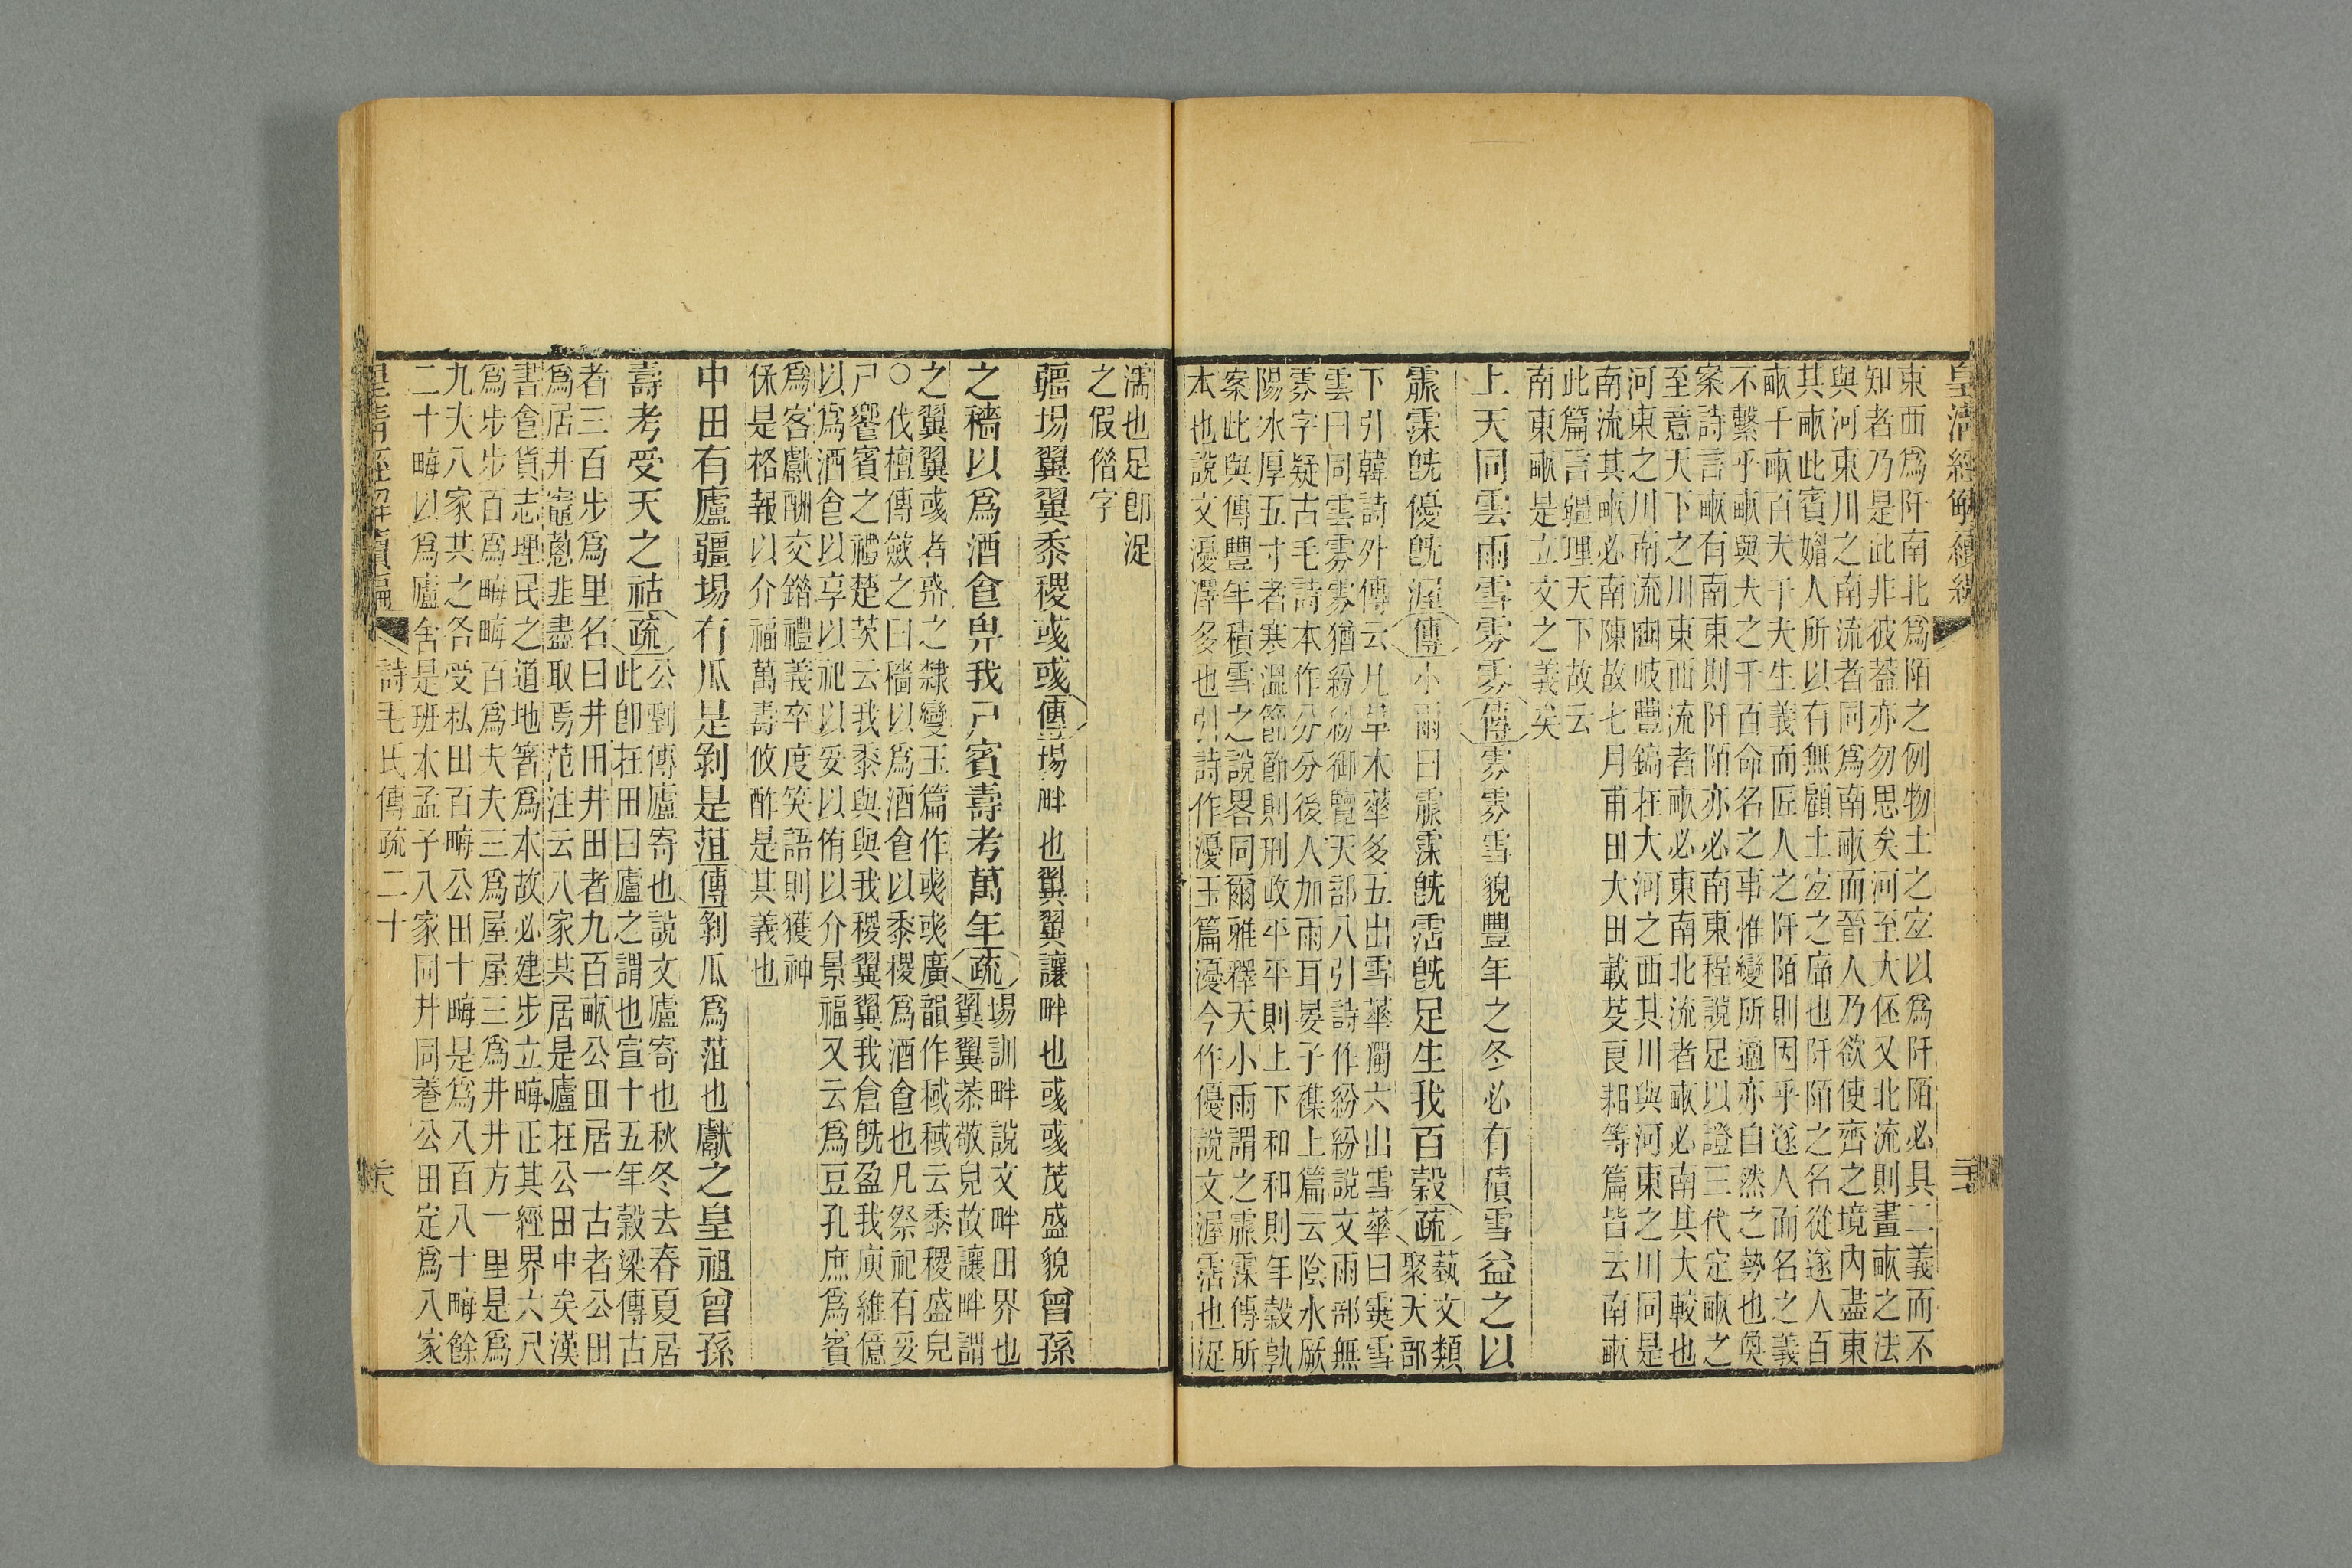 皇清經解續編
東西爲阡南北爲陌之例物土之宜以爲阡陌必具二義而不
知者乃是此非彼蓋亦勿思矣河至大伾又北流則畫畝之法
與河東川之南流者同爲南畝而晉人乃欲使齊之境内盡東
其畝此賓媚人所以有無顧土宜之㢒也阡陌之名從遂人百
畝千畝百夫千夫生義而匠人之阡陌則因乎遂人而名之義
不繫乎畝與夫之千百命名之事惟變所適亦自然之勢也奐
案詩言畝有南東則阡陌亦必南東程說足以證三代定畝之
至意天下之川東西流者畝必東南北流者畝必南其大較也
河東之川南流豳岐豐鎬在大河之西其川與河東之川同是
南流其畝必南陳故七月甫田大田載芟良耜等篇皆云南畝
此篇言疆理天下故云
南東畝是立文之義矣
上天同雲雨雪雰雰傳雰雰雪貌豐年之冬必有積雪益之以
霢霂旣優旣渥傳小雨曰霢霂旣霑旣足生我百穀疏
藝文類
聚天部
下引韓詩外傳云凡草木華多五出雪華獨六出雪華曰霙雪
雲曰同雲雰雰猶紛紛御覽天部八引詩作紛紛說文雨部無
雰字疑古毛詩本作分分後人加雨耳晏子襍上篇云陰水厥
陽冰厚五寸者寒溫節節則刑政平平則上下和和則年穀孰
案此與傳豐年積雪之說畧同爾雅釋天小雨謂之霢霂傳所
本也說文瀀澤多也引詩作瀀玉篇瀀今作優說文渥霑也浞
濡也足卽浞
之假僭字
疆埸翼翼黍稷彧彧傳埸畔也翼翼讓畔也彧彧茂盛貌曾孫
之穡以爲酒食畀我尸賓壽考萬年疏
埸訓畔說文畔田界也
翼翼恭敬皃故讓畔謂
之翼翼彧者之隸變玉篇作彧彧廣韻作稢稢云黍稷盛皃
○伐檀傳斂之曰穡以爲酒食以黍稷爲酒食也凡祭祀有妥
尸饗賓之禮楚茨云我黍與與我稷翼翼我倉旣盈我庾維億
以爲酒食以享以祀以妥以侑以介景福又云爲豆孔庶爲賓
爲客獻酬交錯禮義卒度笑語則獲神
保是格報以介福萬壽攸酢是其義也
中田有廬疆埸有瓜是剝是菹傳剝瓜爲菹也獻之皇祖曾孫
壽考受天之祜疏
公劉傳廬寄也說文廬寄也秋冬去春夏居
此卽在田曰廬之謂也宣十五年穀梁傳古
者三百步爲里名曰井田井田者九百畝公田居一古者公田
爲居井竈蔥韭盡取焉范注云八家共居是廬在公田中矣漢
書食貨志理民之道地箸爲本故必建步立畮正其經界六尺
爲步步百爲畮畮百爲夫夫三爲屋屋三爲井井方一里是爲
九夫八家共之各受私田百畮公田十畮是爲八百八十畮餘
二十畮以爲廬舍是班本孟子八家同井同養公田定爲八家
皇清經解續編 詩毛氏傳疏二十